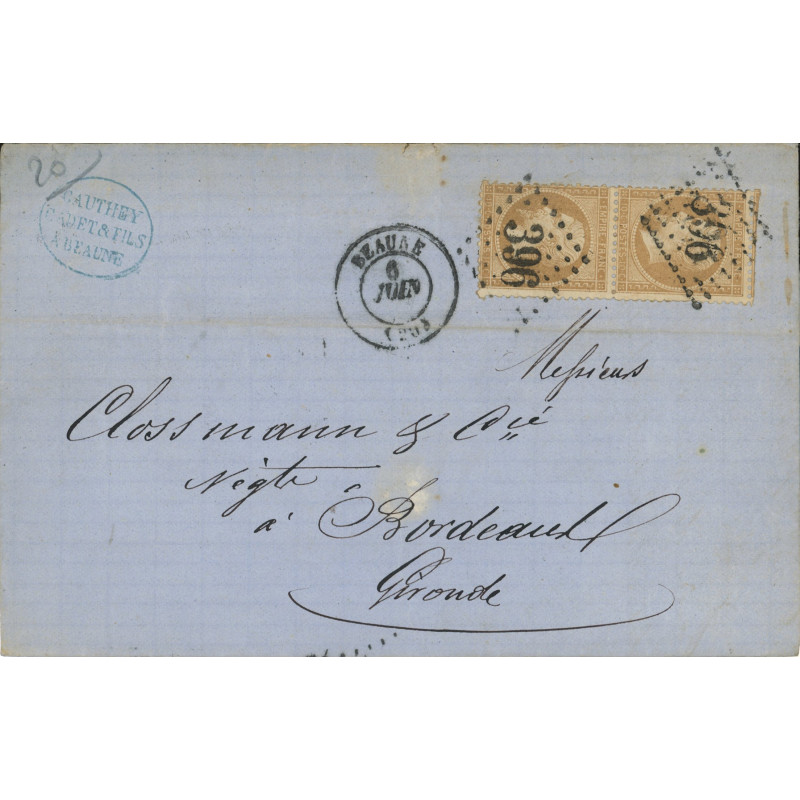 20/
GAUTHEY
CADET & FILS
A BEAUNE
BEAUNE
6
JUIN
(20)
396
396
Messieurs
Clossmann & Cie
Négts
à Bordeaux
Gironde